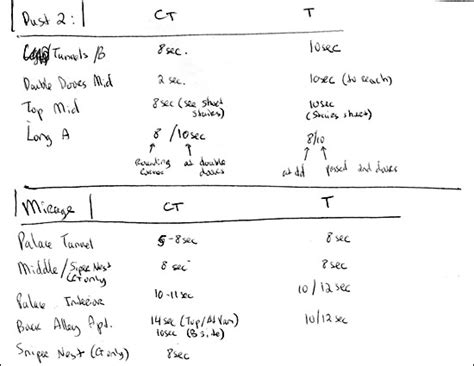 Dust 2: CT T
Tunnels/B 8sec. 10sec
Double Doors Mid 2 sec. 10sec (to reach)
Top Mid 8sec (see short stairs) 10sec (Stairs short)
Long A 8 /10sec 8/10
Rounding corner at double doors at dd passed 2nd doors
Mirage CT T
Palace Tunnel 5-8sec 8sec
Middle/Sniper Nest (CT only) 8sec 8sec
Palace Interior 10-11sec 10/12sec
Back Alley Apt. 14sec (Top/At Van) 10/12sec
10sec (B side)
Sniper Nest (CT only) 8sec